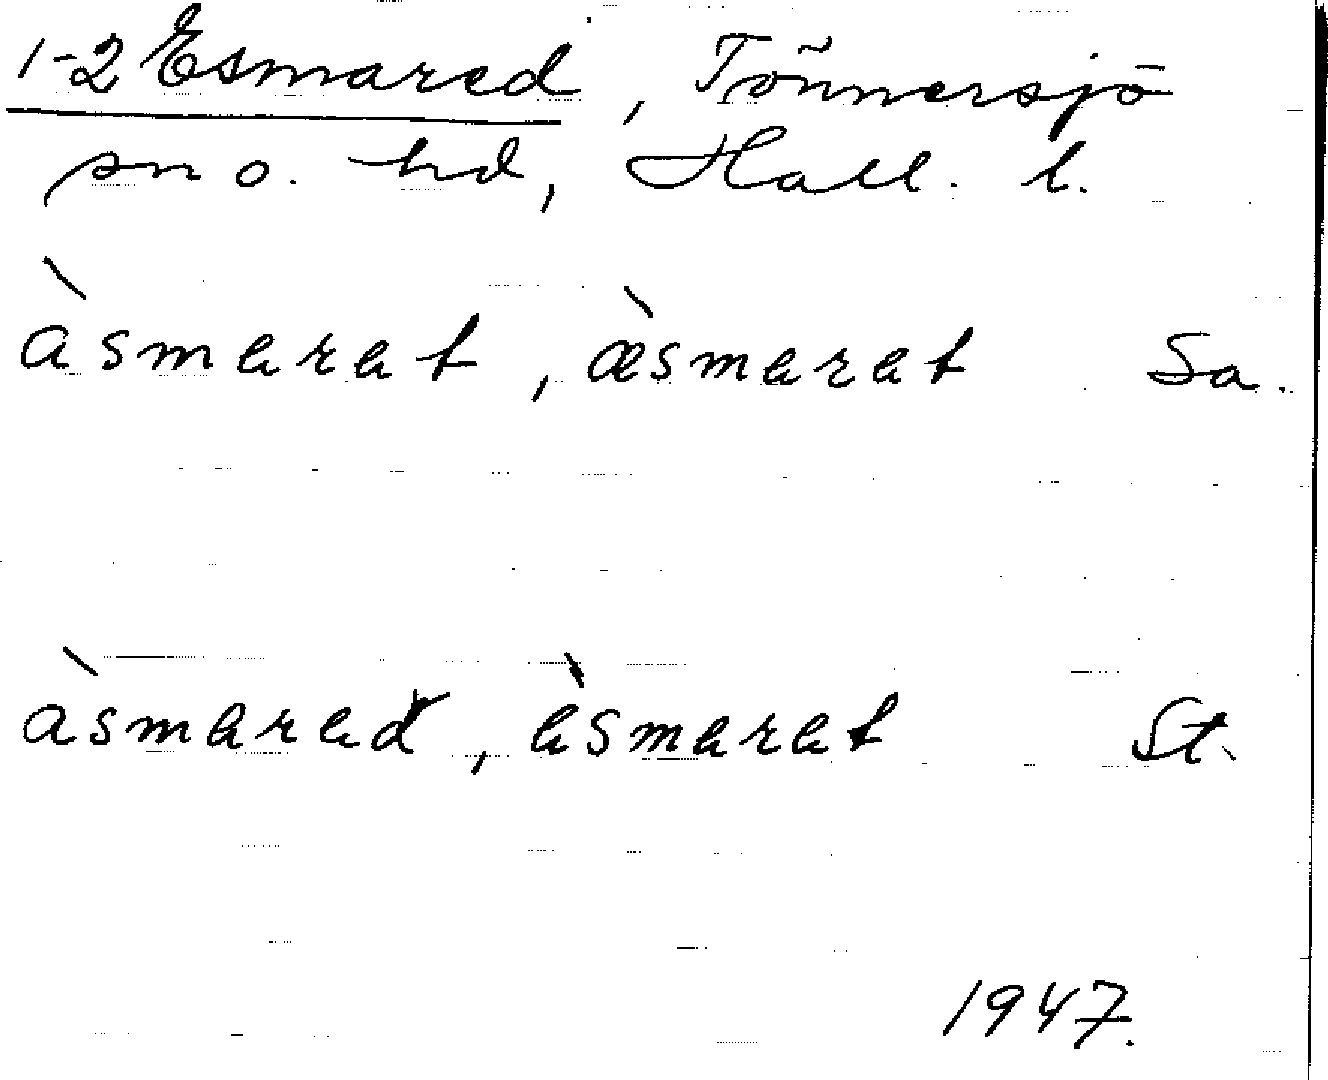 1-2 Esmared, Tönnersjö
sn o. hd, Hall. l.
àsmarat, æ̀smarat Sa.
àsmarad, èsmarat St.
1947.